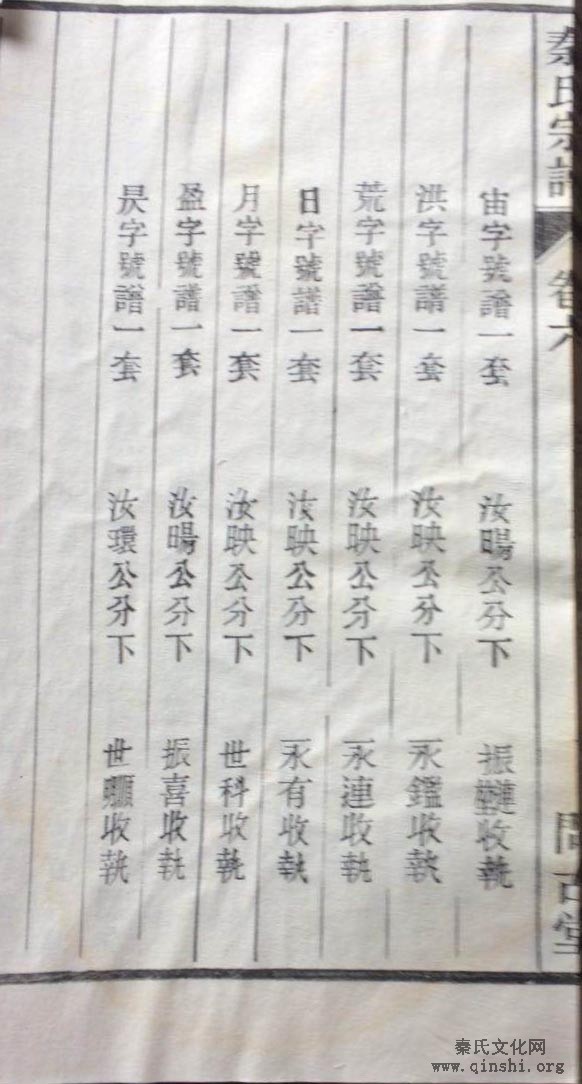 秦氏宗譜
卷六
問古堂
宙字號譜一套 汝暘公分下 振收執
洪字號譜一套 汝映公分下 永鑑收執
荒字號譜一套 汝映公分下 永連收執
日字號譜一套 汝映公分下 永有收執
月字號譜一套 汝映公分下 世科收執
盈字號譜一套 汝暘公分下 振喜收執
昃字號譜一套 汝環公分下 世收執
秦氏文化网
www.qinshi.org